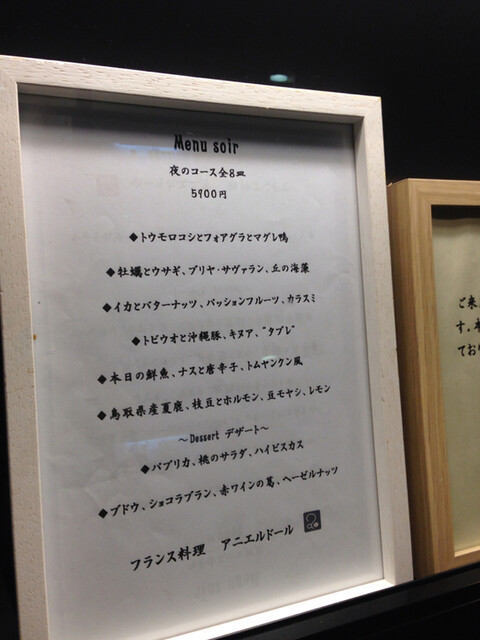 Menu soir
夜のコース全8皿
5900円
◆トウモロコシとフォアグラとマグレ鴨
◆牡蠣とウサギ、ブリヤ・サヴァラン、丘の海藻
◆イカとバターナッツ、パッションフルーツ、カラスミ
◆トビウオと沖縄豚、キヌア、"タブレ"
◆本日の鮮魚、ナスと唐辛子、トムヤンクン風
◆鳥取県産夏鹿、枝豆とホルモン、豆モヤシ、レモン
～Dessert デザート～
◆パプリカ、桃のサラダ、ハイビスカス
◆ブドウ、ショコラブラン、赤ワインの葛、ヘーゼルナッツ
フランス料理 アニエルドール
ご来
す。本
ており